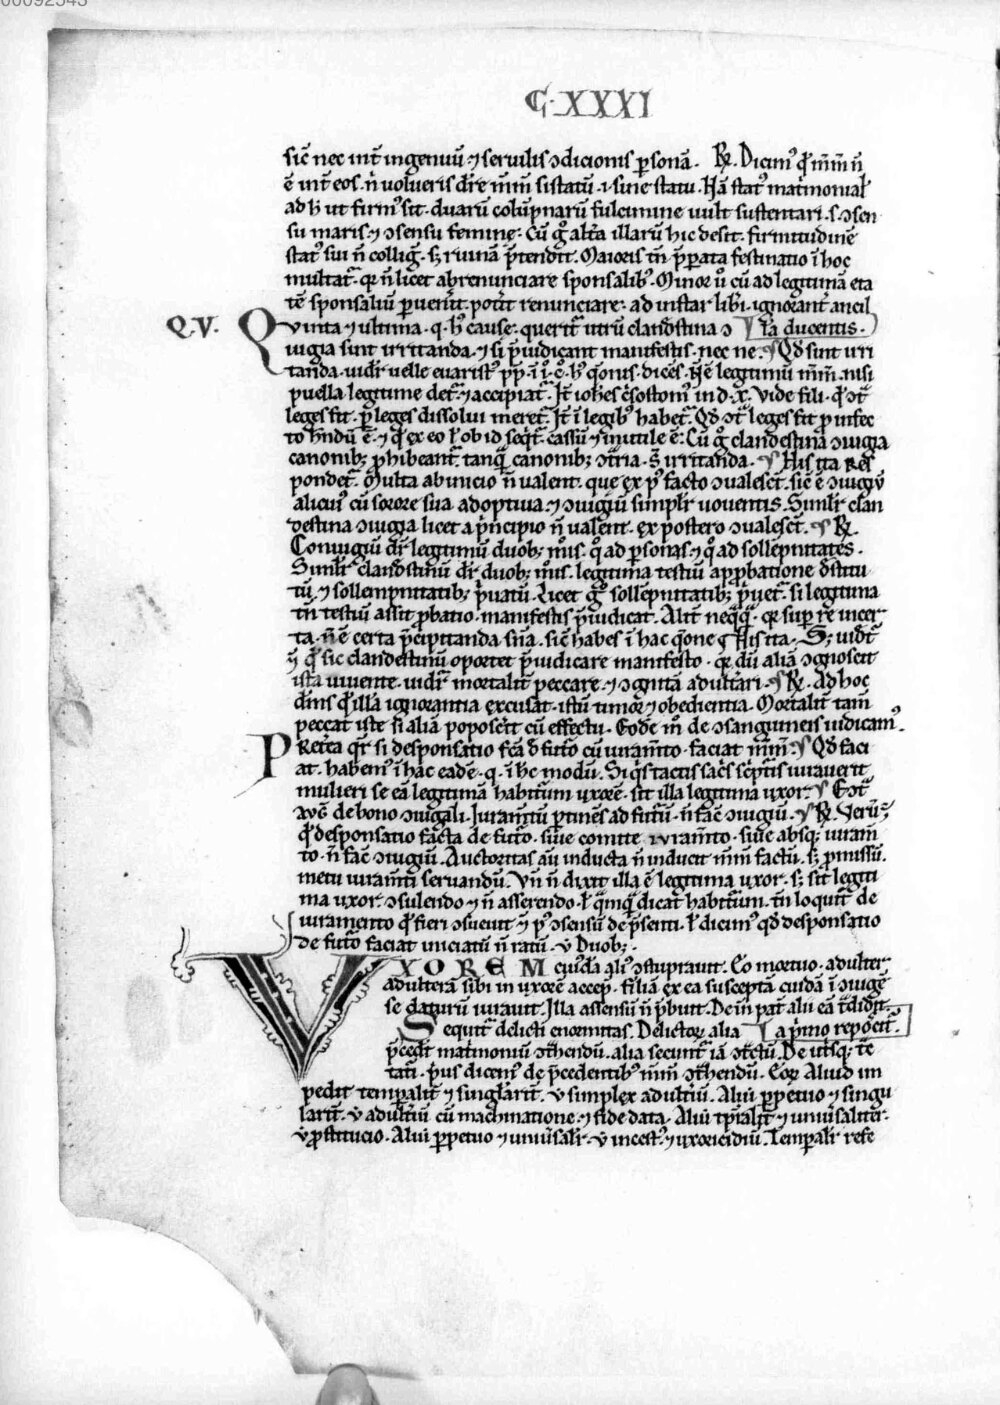 00092543
C·XXXI
sic̄ nec int̄ ingenuū ⁊ seruilis ↄdicionis ꝑsonā. R̄. Dicim⁹ qd̄ m̄m̄ n̄
ē int̄ eos. n̄ volueris dr̄e m̄m̄ sistatū .i. sine statu. Nā stat⁹ mat̄monial̄
ad h̄ ut firm⁹ sit. duarū colūpnarū fulcimine uult sustentari. s. ↄsen
su maris. ⁊ ↄsensu femine. Cū gͦ alt̄a illarū hic desit. firmitudinē
stat⁹ sui n̄ colliḡ. sꝫ ruinā p̄tendit. Maioris tn̄ p̄ꝑata festinatio ī hoc
multat̄. qr̄ n̄ licet abrenunciare sponsalib⁹. Minor ū cū ad legitimā eta
tē sponsaliū ꝑuen̄it. pot̄it renunciare. ad instar lib̄i. ignorant̄ ancil
Q.V. Quinta ⁊ ultima .q. h⁹ cause. querit̄ utrū clandestina ↄ la ducentis.
iugia sint irritanda. ⁊ si p̄iudicant manifestis. nec ne. ¶ Qd̄ sint irri
tanda. uidet̄ uelle euarist⁹ pp̄. ī .i. c̄. h⁹ q̄onis. dicēs. N̄ē legitimū m̄m̄. nisi
puella legitime det̄ ⁊ accipiat̄. It̄ ioh̄es c̄sostom⁹ in d. x. Vide fili. qd̄ ↄt̄
leges fit. ꝑ leges dissolui meret̄. It̄ ī legib⁹ habet̄. Qd̄ ↄt̄ leges fit ꝓ infec
to h̄ndū ē. ⁊ qd̄ ex eo l̄ ob id seq̄t̄. cassū ⁊ inutile ē. Cū gͦ clandestina ↄiugia
canonibꝫ ꝓhibeant̄. tanq̄ canonibꝫ ↄt̄ria. s̄ irritanda. ¶ His ita res
pondet̄. Multa ab inicio n̄ valent. que ex p⁹ facto ↄualesc̄t. sic̄ ē ↄiugiū
alicui⁹ cū sorore sua adoptiua. ⁊ ↄiugiū simpl̄r uouentis. Simil̄r clan
destina ↄiugia licet a p̄ncipio n̄ valent. ex postero ↄualesc̄t. ¶ R̄.
Coniugiū dr̄ legitimū duobꝫ m̄is. qͦ ad ꝑsonas. ⁊ qͦ ad sollēpnitates.
Simil̄r clandestinū dr̄ duobꝫ m̄is. legitima testiū apꝓbatione d̄stitu
tū. ⁊ sollempnitatibꝫ p̄uatū. Licet gͦ sollēpnitatibꝫ p̄uet̄. si legitima
tn̄ testiū assit ꝓbatio. manifestis p̄iudicat. Alit̄ neq̄q̄. qr̄ suꝑ re incer
ta. n̄ ē certa p̄cipitanda sn̄a. sic̄ habes ī hac q̄one ¶ His ita. Sꝫ uidet̄
qd̄ sic clandestinū oportet p̄iudicare manifesto. qr̄ dū aliā ↄgnoscit
ista viuente. uidet̄ mortalit̄ peccare. ⁊ ↄgnitā adult̄ari. ¶ R̄. Ad hoc
dīus qd̄ illa ignorantia excusat. istū timor ⁊ obedientia. Mortalit̄ tam̄
peccat iste si aliā poposc̄it cū effectu. Eodē m̄ de ↄsanguineis iudicam⁹.
Preterea qr̄t̄ si desponsatio fc̄a d̄ fut̄o cū iuram̄to. faciat m̄m̄. ¶ Qd̄ faci
at. habem⁹ ī hac eadē .q. ī h̄c modū. Siq̄s tactis sac̄s sc̄ptis iurauerit
mulieri se eā legitimā habit̄um uxorē. sit illa legitima uxor. ¶ Eↄt̄
de bono ↄiugali. Iuram̄tū ꝑtinēs ad fut̄ū. n̄ fac̄ ↄiugiū. ¶ R̄. Verū ē
qd̄ desponsatio facta de fut̄o. siue comite iuram̄to. siue absqꝫ iuram̄
to. n̄ fac̄ ↄiugiū. Auctoritas aū inducta n̄ inducit m̄m̄ factū. sꝫ ꝓmissū.
metu iuram̄ti seruandū. Vn̄ n̄ dixit illa ē legitima uxor. sꝫ sit legiti
ma uxor. ↄsulendo ⁊ n̄ asserendo. l̄ q̄mq̄ dicat habit̄um. tn̄ loquit̄ de
iuramento qd̄ fieri ↄsueuit p⁹ ↄsensū de p̄senti. l̄ dicim⁹ qd̄ desponsatio
de fut̄o faciat iniciatū n̄ ratū. ū Duobꝫ.
VXOREM cui⁹dā q̄li⁹ ↄstuprauit. Eo mortuo. adulter
adulterā sibi in uxorē accep̄. filiā ex ea susceptā cuidā ī ↄiuge
se daturū iurauit. Illa assensū n̄ p̄buit. Dein̄ pat̄ alii eā t̄didit.
Sequit̄ delicti enormitas. Delictoꝝ alia a p̄mo repoc̄it.
p̄cedūt matimoniū ↄt̄hendū. alia secunt̄ iā ↄt̄ctū. De ut̄sqꝫ t̄c
tat̄. p̄us dicem⁹ de p̄cedentib⁹ m̄m̄ ↄt̄hendū. Eoꝝ Aliud im
pedit temꝑalit̄ ⁊ singl̄arit̄. ū simplex adult̄iū. Aliū ꝑpetuo ⁊ singu
larit̄. ū adult̄iū cū machinatione ⁊ fide data. Aliū tp̄ralit̄ ⁊ uniū̄saliter.
ū ꝓstitucio. Aliū ꝑpetuo ⁊ uniū̄salit̄. ū incest⁹ ⁊ uxoricidiū. Temꝑalit̄ refe